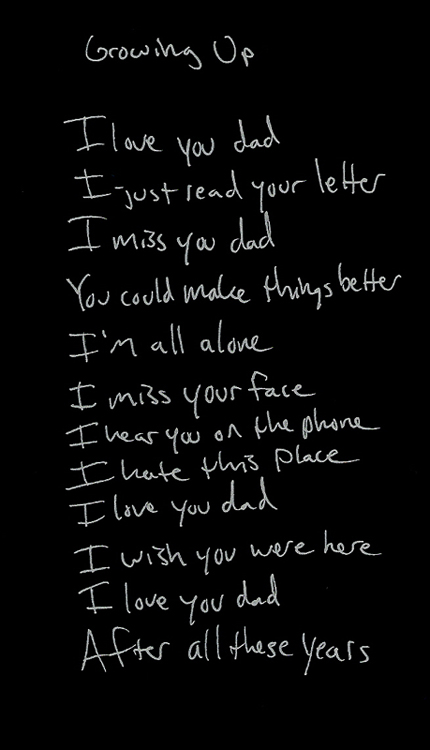 Growing Up
I love you dad
I just read your letter
I miss you dad
You could make things better
I'm all alone
I miss your face
I hear you on the phone
I hate this place
I love you dad
I wish you were here
I love you dad
After all these years